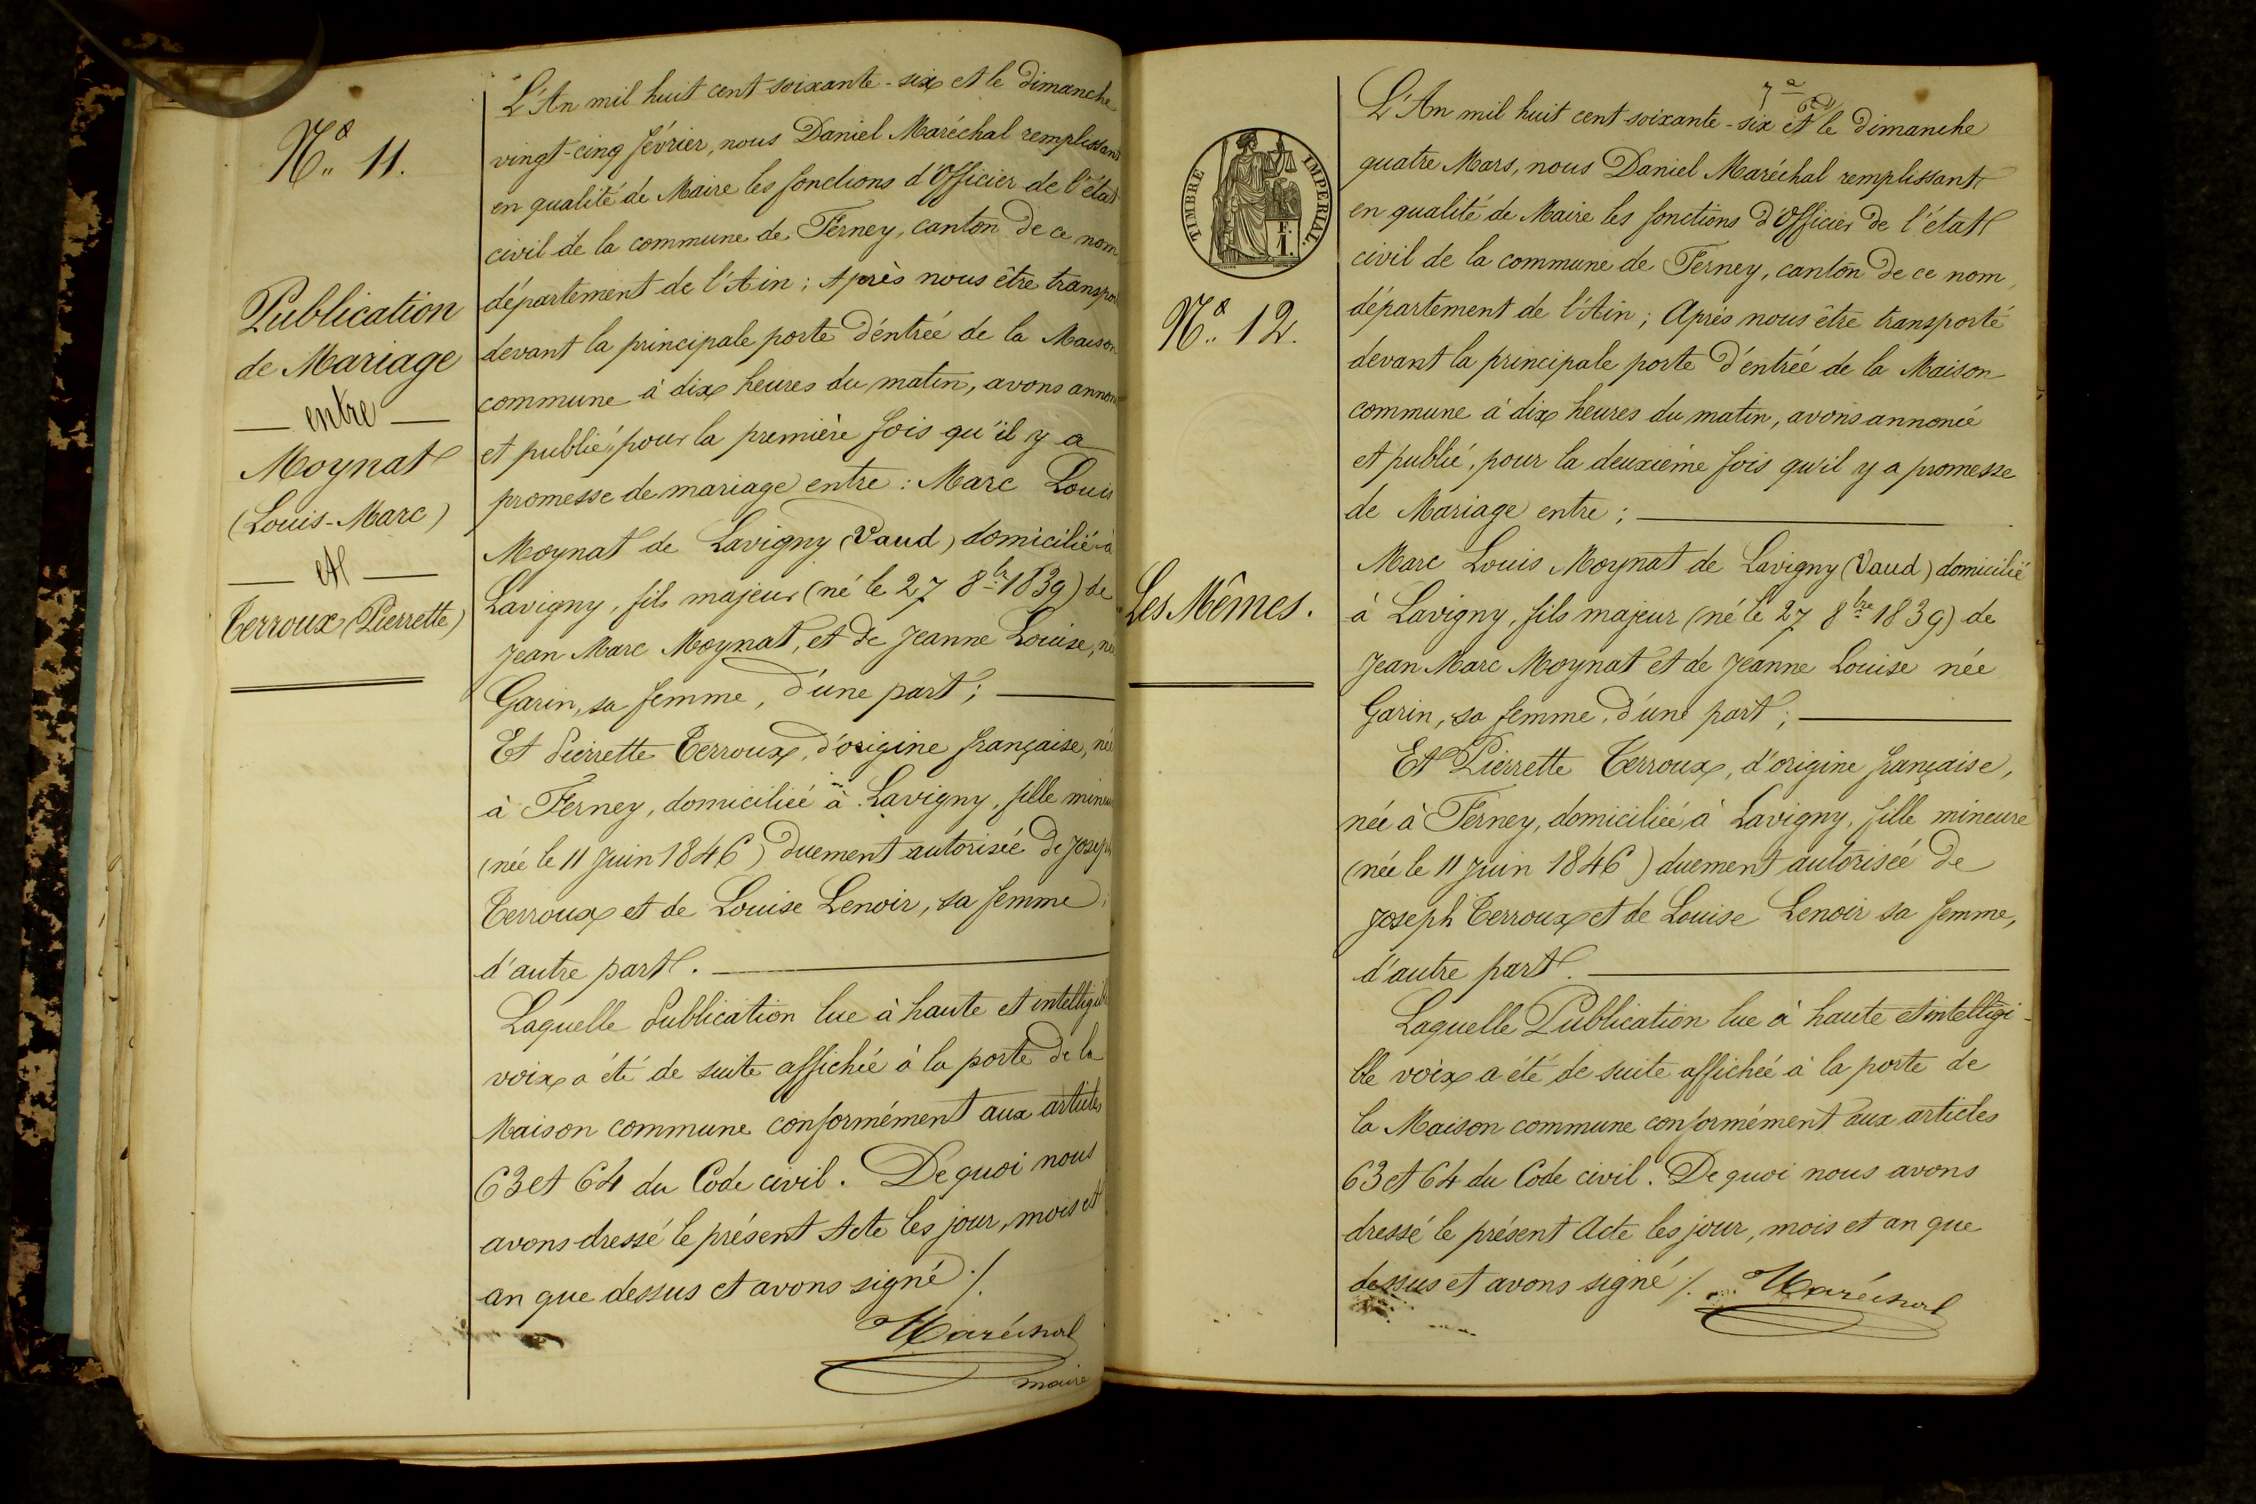 Nº 11.
Publication
de Mariage
entre
Moynat
(Louis-Marc)
et
Terroux (Pierrette)
L'An mil huit cent soixante-six et le dimanche
vingt-cinq février, nous Daniel Maréchal remplissant
en qualité de Maire les fonctions d'Officier de l'état
civil de la commune de Ferney, canton de ce nom
département de l'Ain; Après nous être transpor
devant la principale porte d'entrée de la Maison
commune à dix heures du matin, avons annon
et publié, pour la première fois qu'il y a
promesse de mariage entre: Marc Louis
Moynat de Lavigny (Vaud) domicilié à
Lavigny, fils majeur (né le 27 8bre 1839) de
Jean Marc Moynat, et de Jeanne Louise, né
Garin, sa femme, d'une part;
Et Pierrette Terroux, d'origine française, née
à Ferney, domiciliée à Lavigny, fille mineu
(née le 11 Juin 1846) duement autorisée de Joseph
Terroux et de Louise Lenoir, sa femme;
d'autre part.
Laquelle Publication lue à haute et intelligible
voix a été de suite affichée à la porte de la
Maison commune conformément aux articles
63 et 64 du Code civil. De quoi nous
avons dressé le présent Acte les jour, mois et
an que dessus et avons signé ./.
Maréchal
maire
TIMBRE IMPERIAL.
F.
1.
Nº 12.
Les Mêmes.
L'An mil huit cent soixante-six et le dimanche
quatre Mars, nous Daniel Maréchal remplissant
en qualité de Maire les fonctions d'Officier de l'état
civil de la commune de Ferney, canton de ce nom,
département de l'Ain; Après nous être transporté
devant la principale porte d'entrée de la Maison
commune à dix heures du matin, avons annoncé
et publié, pour la deuxième fois qu'il y a promesse
de Mariage entre;
Marc Louis Moynat de Lavigny (Vaud) domicilié
à Lavigny, fils majeur (né le 27 8bre 1839) de
Jean Marc Moynat et de Jeanne Louise née
Garin, sa femme, d'une part;
Et Pierrette Terroux, d'origine française,
née à Ferney, domiciliée à Lavigny, fille mineure
(née le 11 Juin 1846) duement autorisée de
Joseph Terroux et de Louise Lenoir sa femme,
d'autre part.
Laquelle Publication lue à haute et intelligi-
ble voix a été de suite affichée à la porte de
la Maison commune conformément aux articles
63 et 64 du Code civil. De quoi nous avons
dressé le présent Acte les jour, mois et an que
dessus et avons signé ./. Maréchal